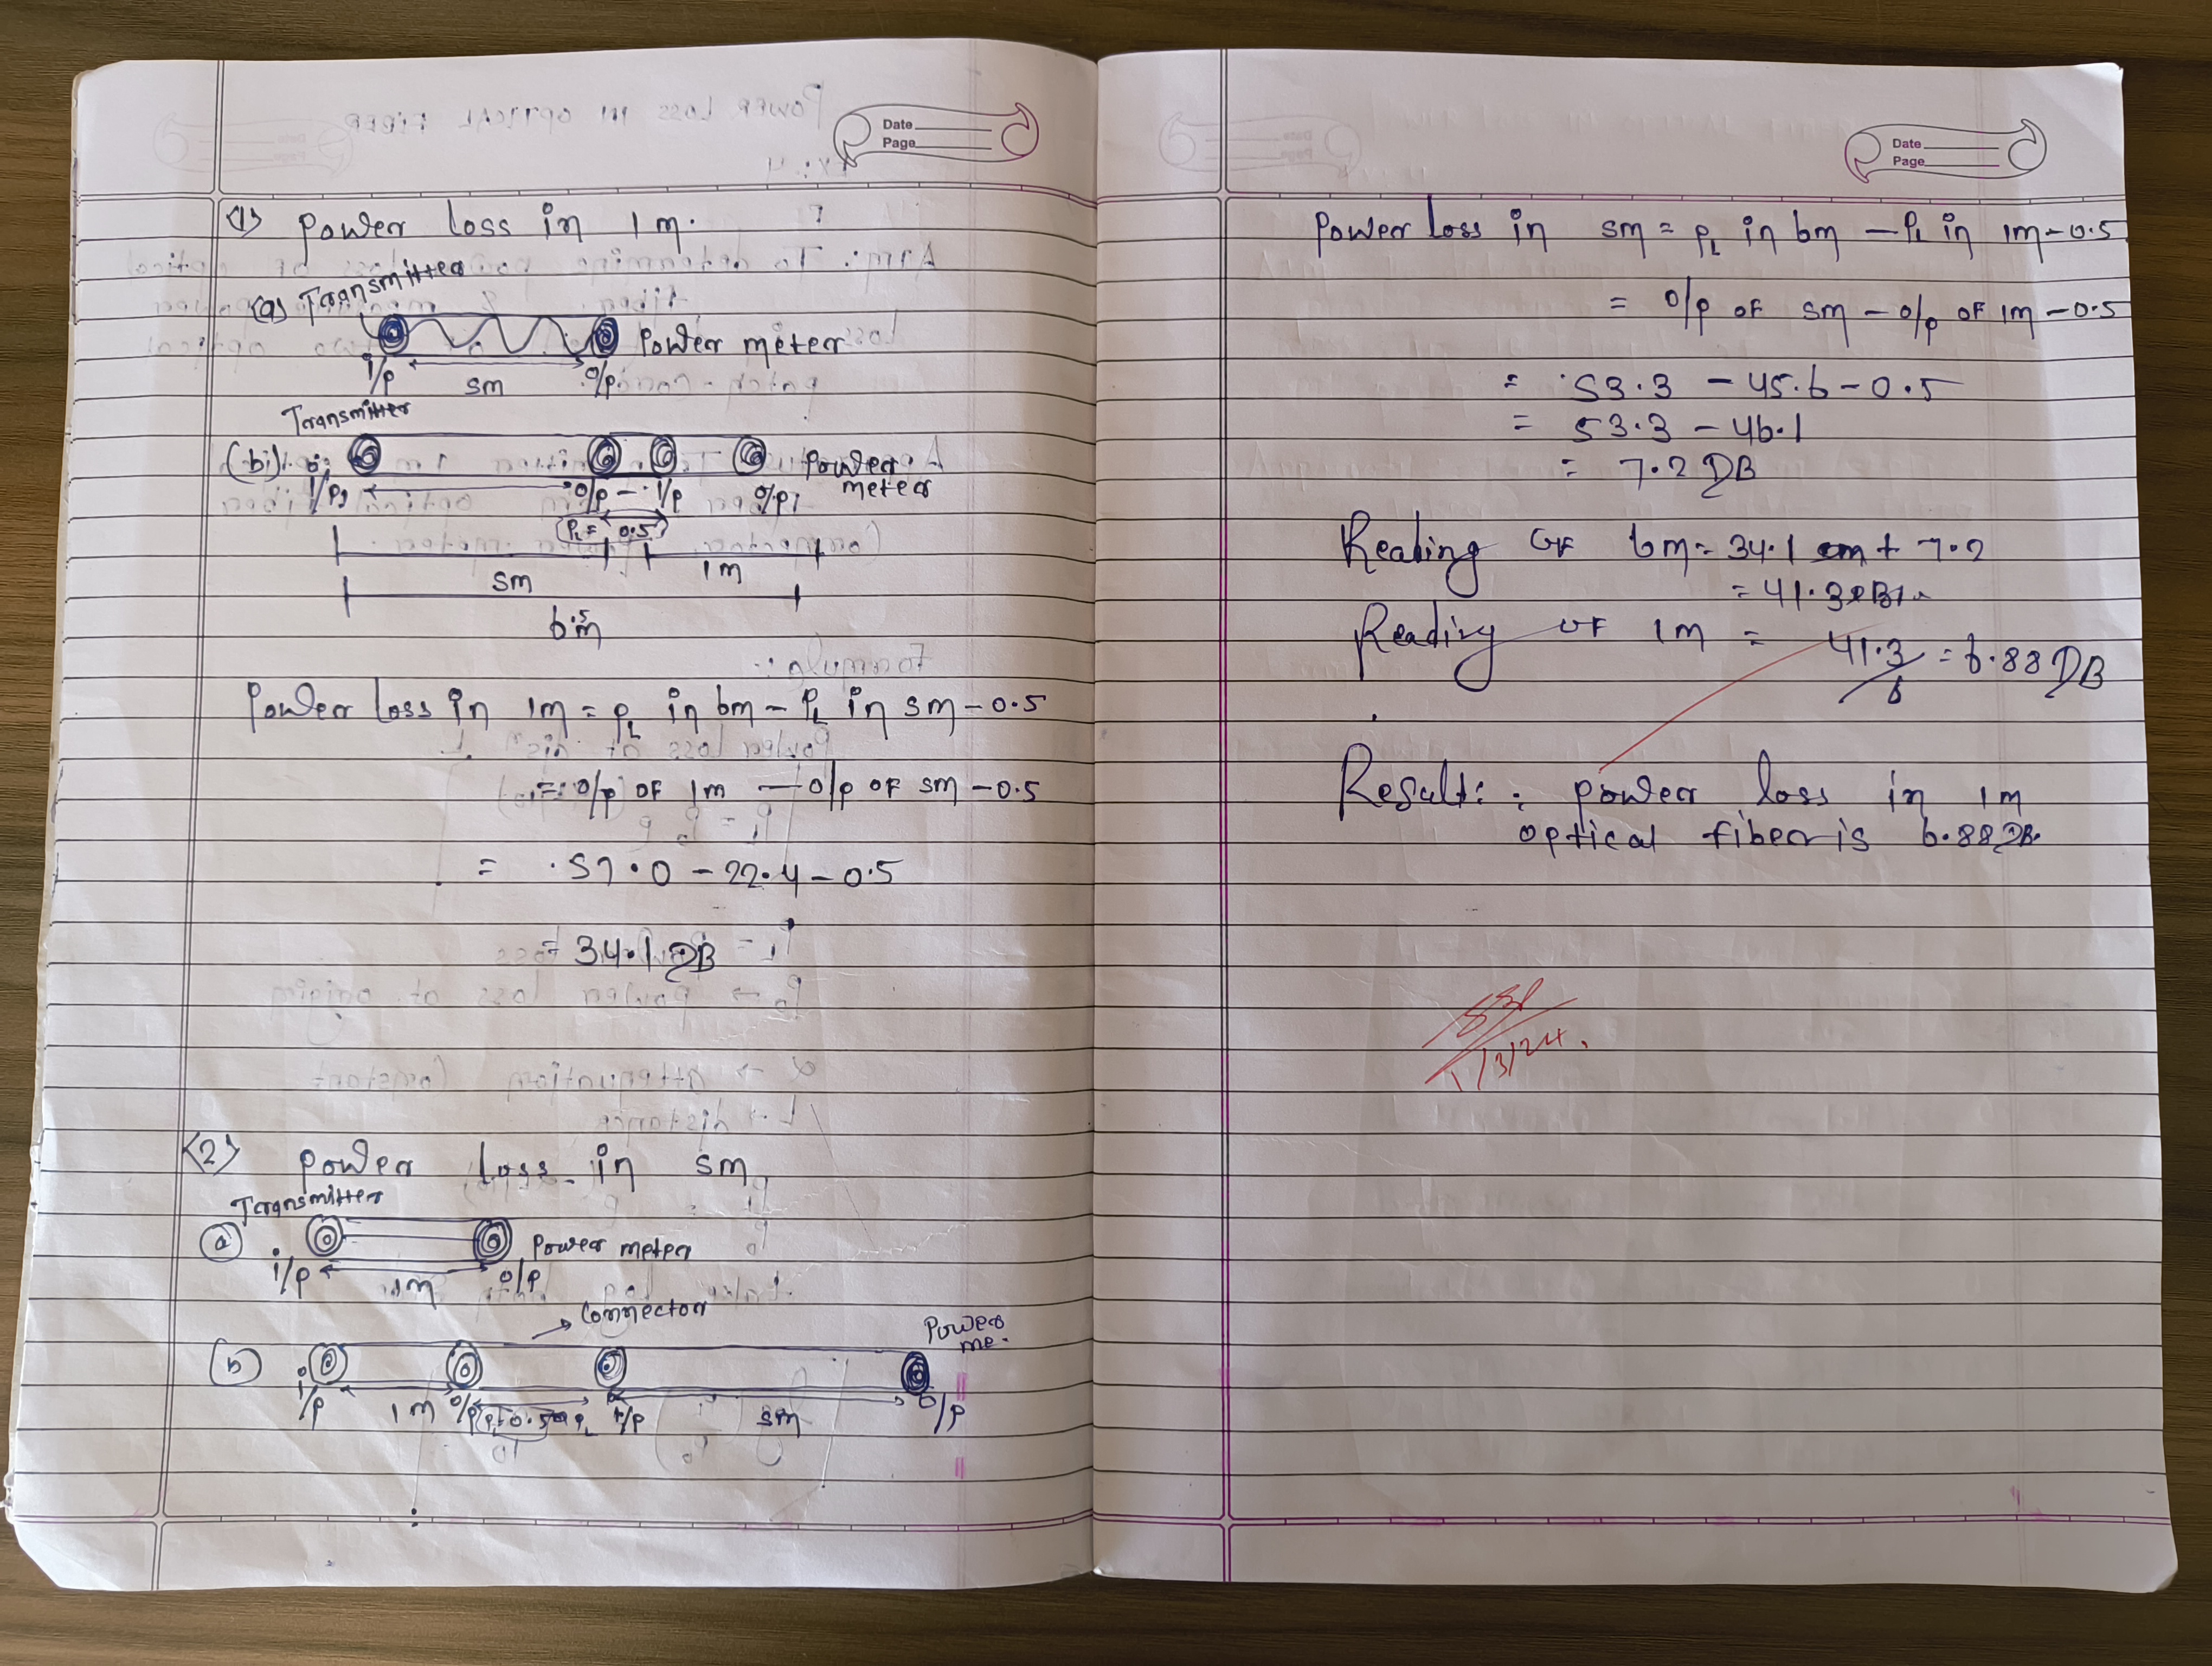 Date
Page
<1> Power loss in 1m.
(a) Transmitter
Power meter
i/p 5m o/p
Transmitter
(b)
Power meter
i/p o/p - i/p o/p
PL = 0.5
5m 1m
6.5m
Power loss in 1m = PL in 6m - PL in 5m - 0.5
= o/p OF 1m - o/p OF 5m - 0.5
= 57.0 - 22.4 - 0.5
= 34.1 DB
<2> Power loss in 5m
Transmitter
(a)
Power meter
i/p 1m o/p
Connector
Power me.
(b)
i/p 1m o/p i/p 5m o/p
Date
Page
Power loss in 5m = PL in 6m - PL in 1m - 0.5
= o/p OF 5m - o/p OF 1m - 0.5
= 53.3 - 45.6 - 0.5
= 53.3 - 46.1
= 7.2 DB
Reading OF 6m = 34.1 + 7.2
= 41.3
Reading OF 1m = 41.3/6 = 6.88 DB
Result: : power loss in 1m
optical fiber is 6.88 DB.
1/3/24.